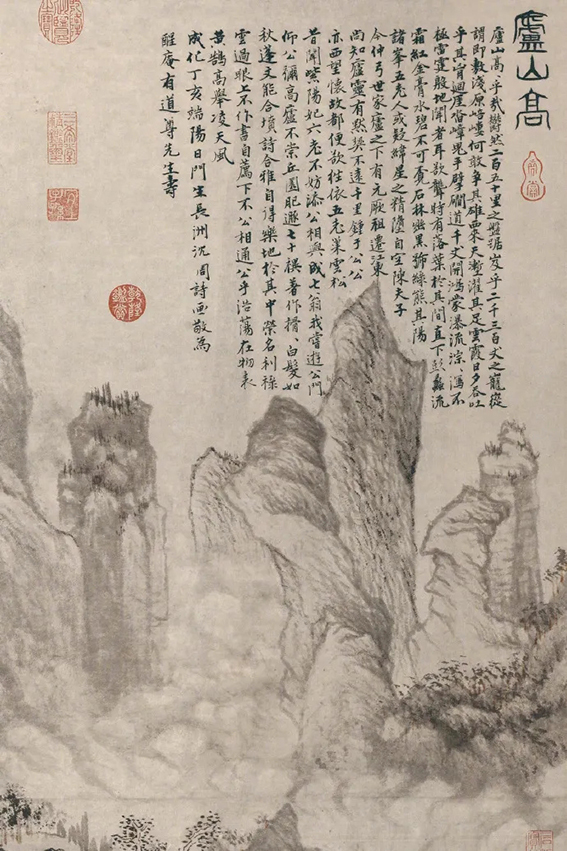 廬山高
廬山高〻乎哉鬱然二百五十里之盤踞岌乎二千三百丈之巃嵷
謂即敷淺原培塿何敢爭其雄西來天塹濯其足雲霞旦夕吞吐
乎其胸迴崖沓嶂鬼手擘磵道千丈開鴻蒙瀑流淙〻瀉不
極雷霆殷地聞者耳欲聾時有落葉於其間直下彭蠡流
霜紅金膏水碧不可覓石林幽黑號綠熊其陽
諸峯五老人或疑緯星之精墮自空陳夫子
今仲弓世家廬之下有元厥祖遷江東
尚知廬靈有默契不遠千里鍾于公〻
亦西望懷故都便欲往依五老巢雲松
昔聞紫陽妃六老不妨添公相與成七翁我嘗遊公門
仰公彌高廬不崇丘園肥遯七十祺著作搰〻白髮如
秋蓬文能合墳詩合雅自得樂地於其中榮名利祿
雲過眼上不作書自薦下不公相通公乎浩蕩在物表
黃鵠高舉凌天風
成化丁亥端陽日門生長洲沈周詩畫敬為
醒庵有道尊先生壽